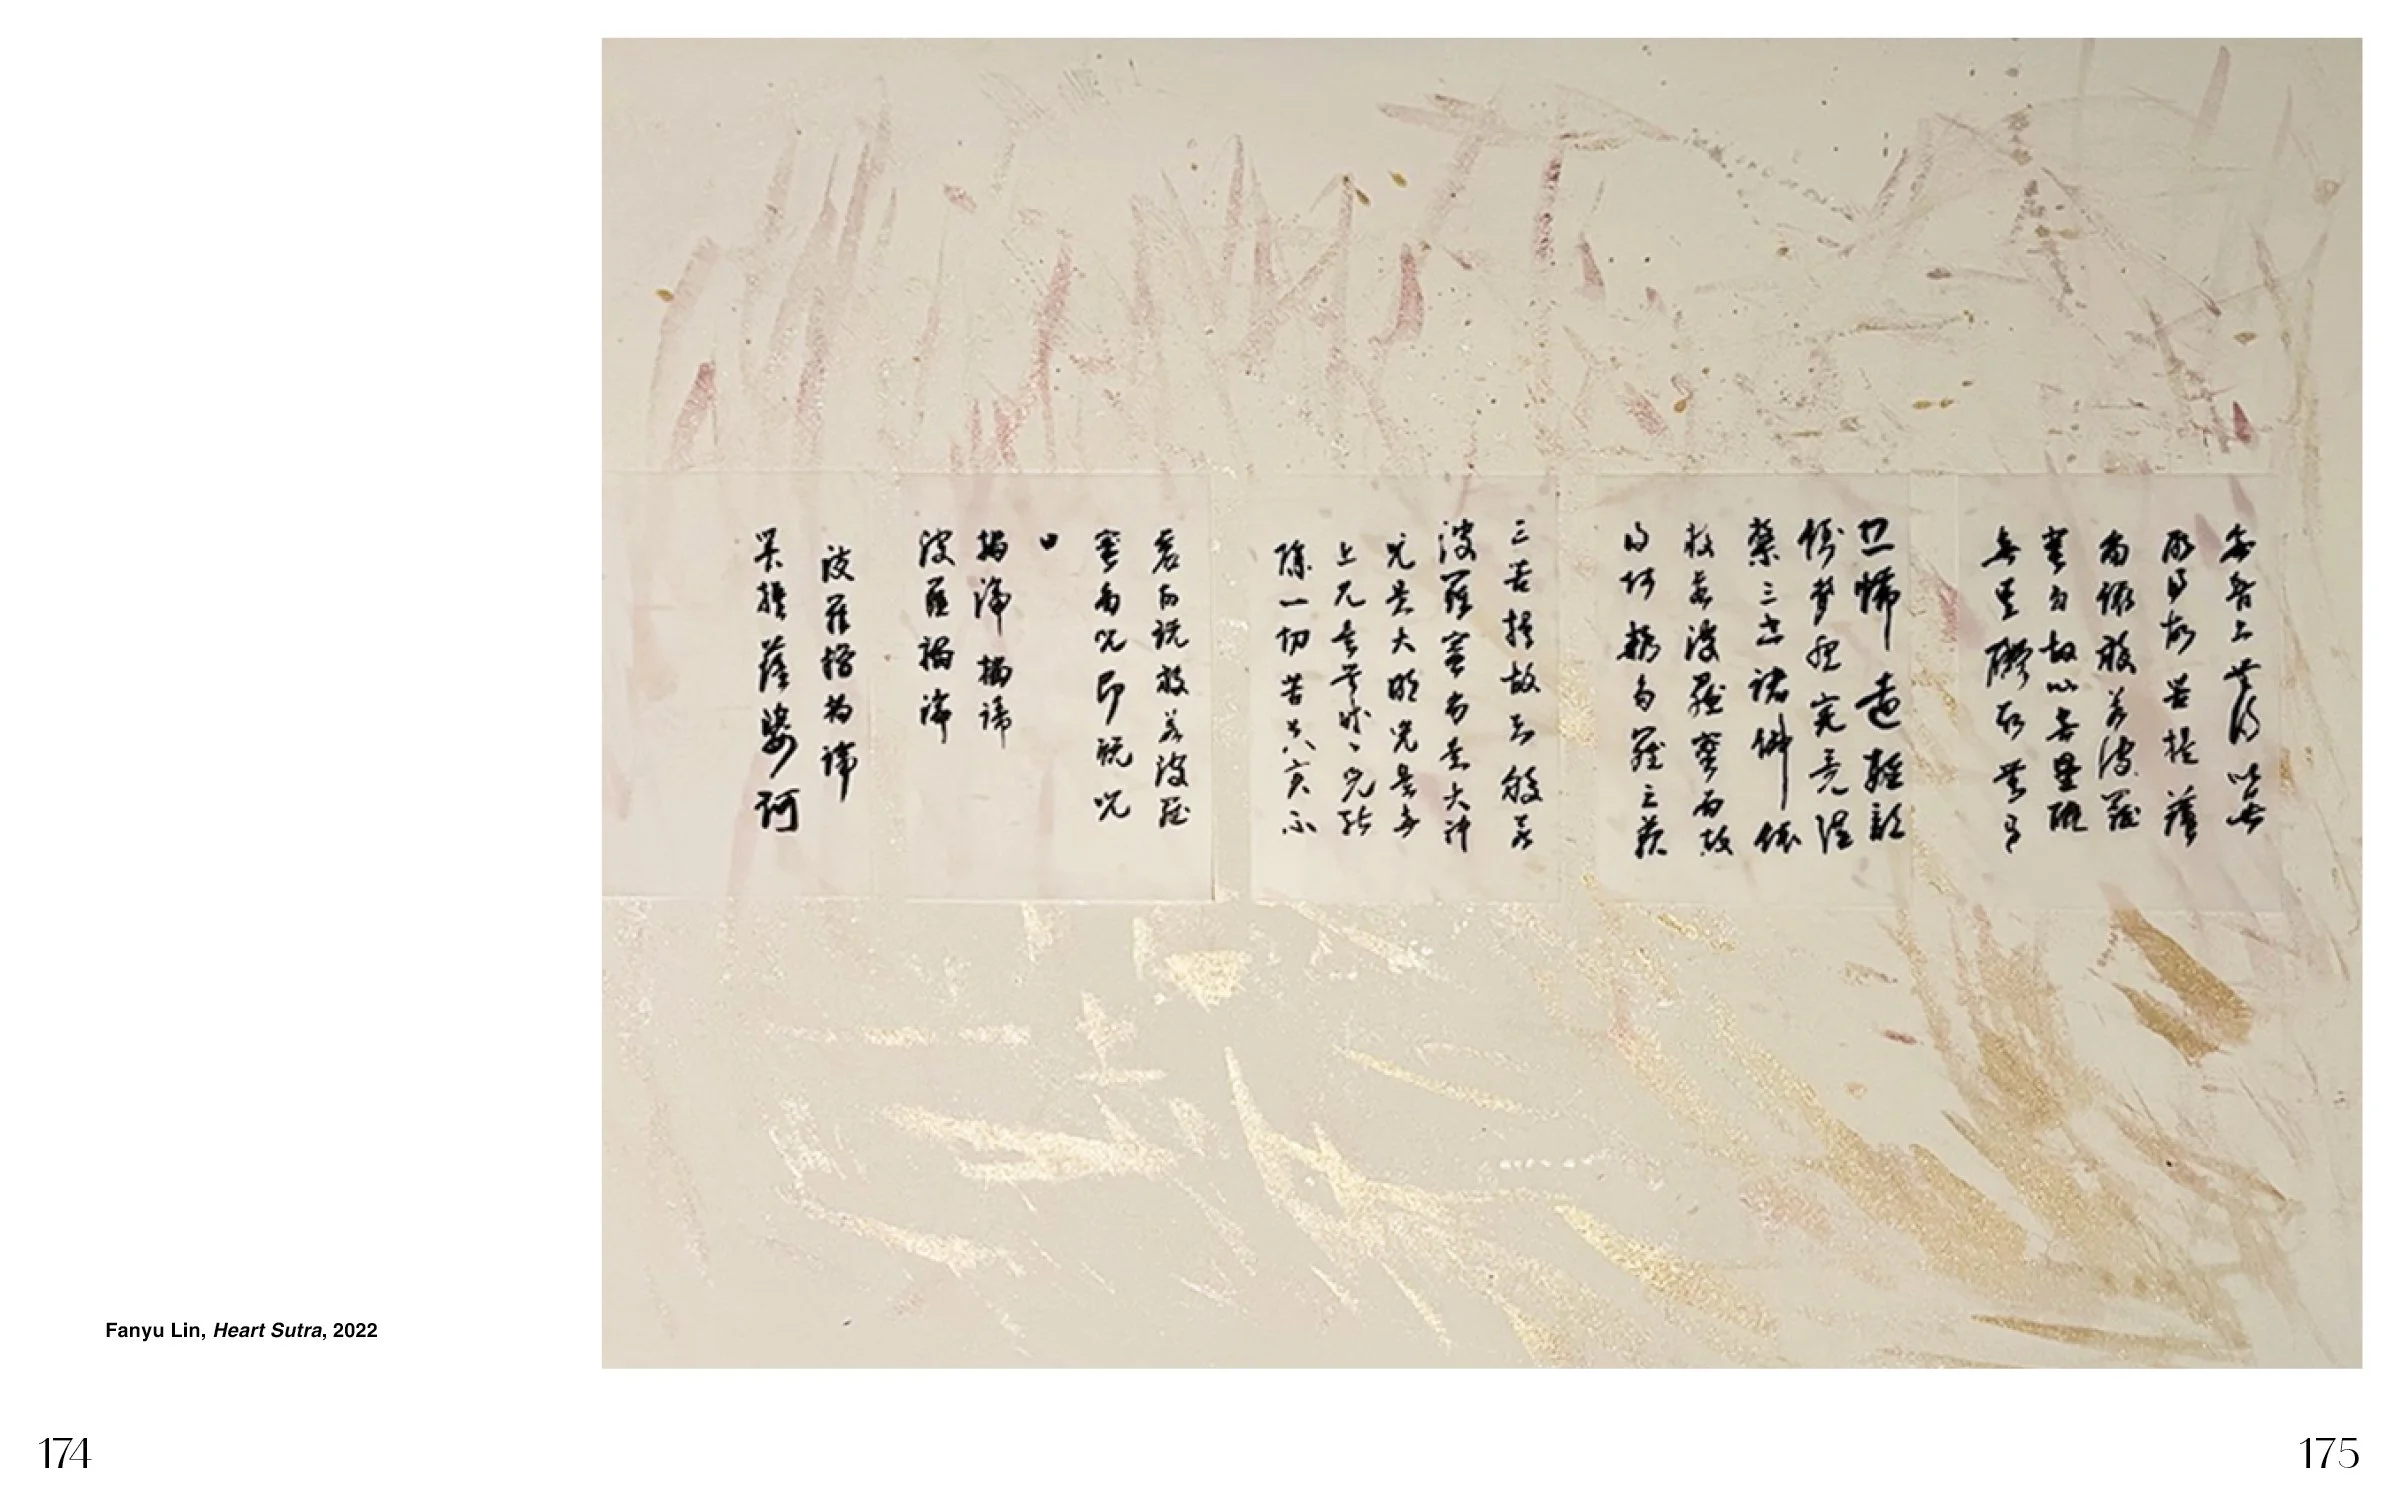 無智亦無得以無
所得故菩提薩
埵依般若波羅
蜜多故心無罣礙
無罣礙故無有
恐怖遠離顛
倒夢想究竟涅
槃三世諸佛依
般若波羅蜜多故
得阿耨多羅三藐
三菩提故知般若
波羅蜜多是大神
咒是大明咒是無
上咒是無等等咒能
除一切苦真實不
虛故說般若波羅
蜜多咒即說咒
曰
揭諦揭諦
波羅揭諦
波羅僧揭諦
菩提薩婆訶
Fanyu Lin, Heart Sutra, 2022
174
175